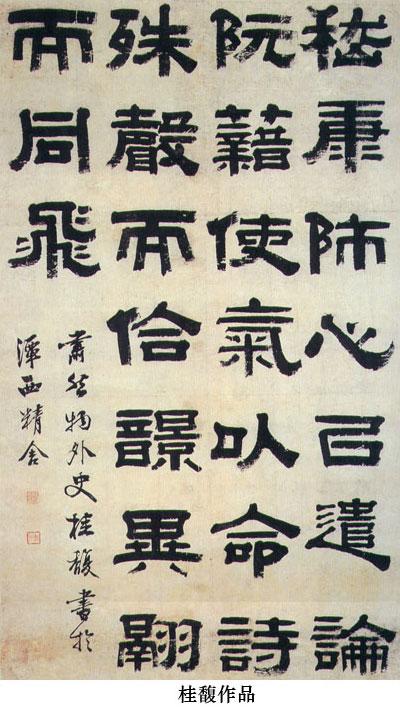 嵇康師心已遣論
阮藉使氣以命詩
殊聲而佮𩐿異翮
而同飛
肅然物外史桂馥書於
潭西精舍
桂馥作品